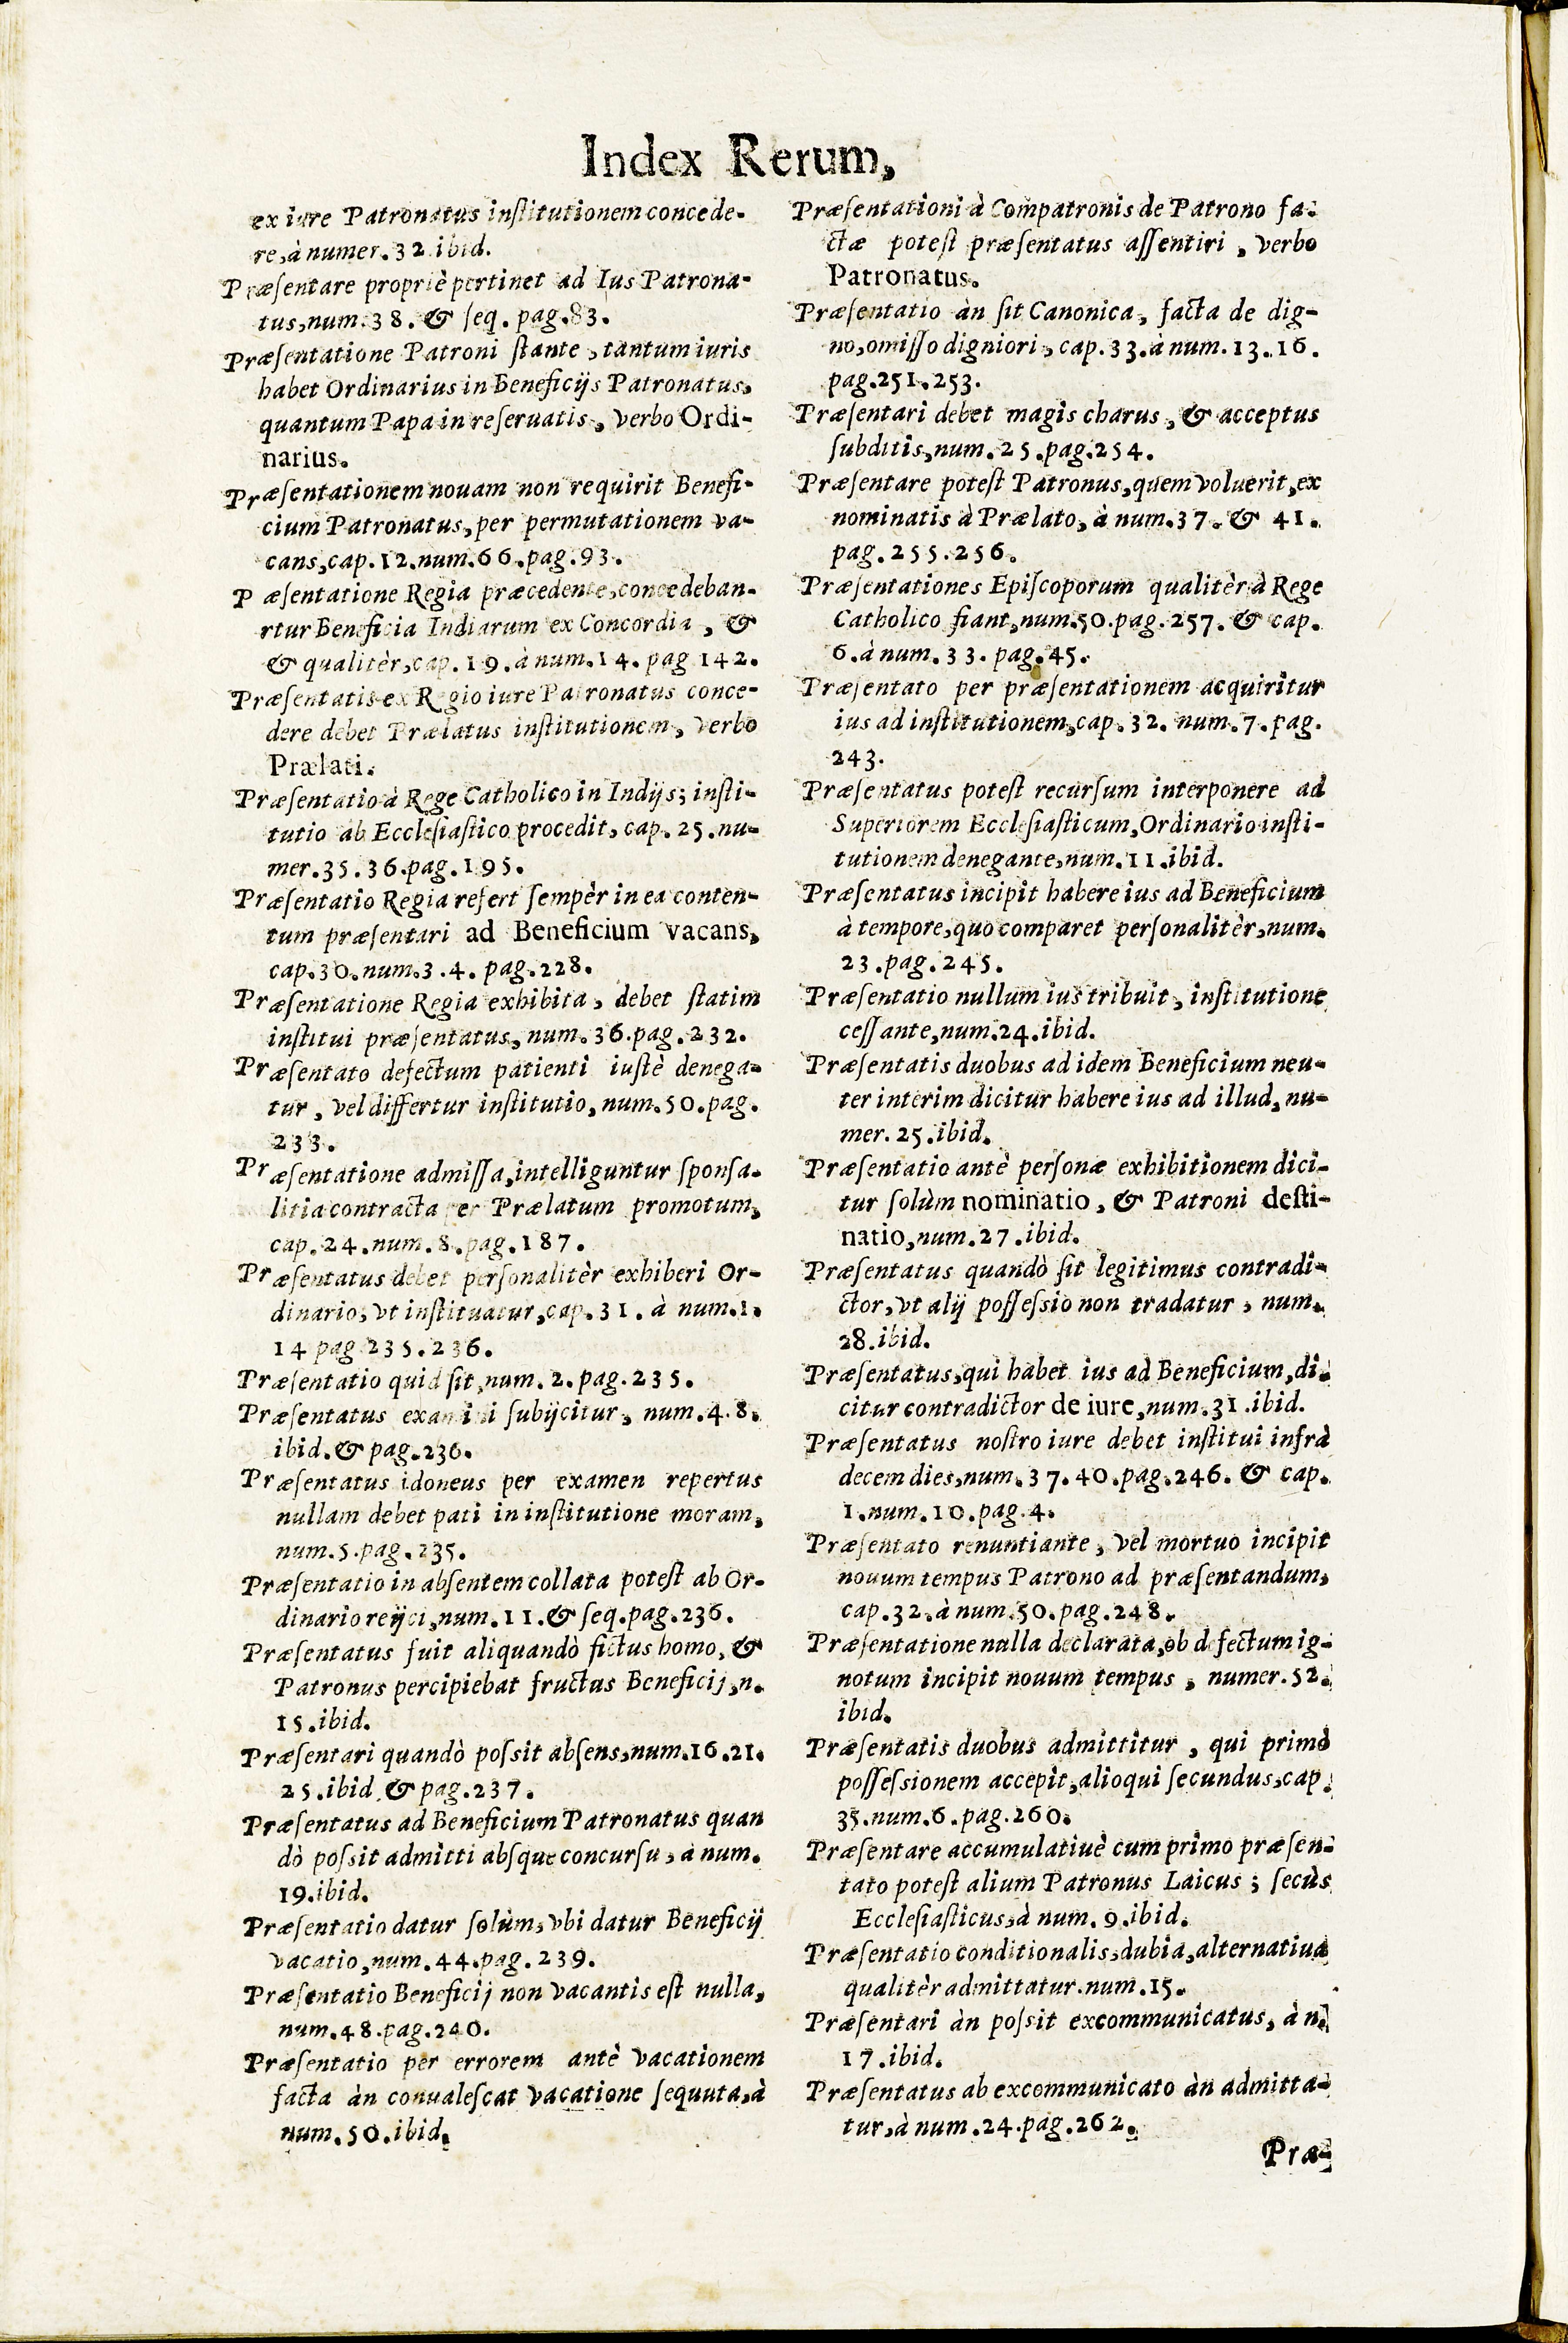 Index Rerum,
ex iure Patronatus inſtitutionem concede-
re, à numer. 32 ibid.
Præſentare propriè pertinet ad Ius Patrona-
tus, num. 38. & ſeq. pag. 83.
Præſentatione Patroni ſtante, tantum iuris
habet Ordinarius in Beneficijs Patronatus,
quantum Papa in reſeruatis, verbo Ordi-
narius.
Præſentationem nouam non requirit Benefi-
cium Patronatus, per permutationem va-
cans, cap. 12. num. 66. pag. 93.
P æſentatione Regia præcedente, concedeban-
rtur Beneficia Indiarum ex Concordia, &
& qualitèr, cap. 19. à num. 14. pag 142.
Præſentatis ex Regio iure Patronatus conce-
dere debet Prælatus inſtitutionem, verbo
Prælati.
Præſentatio à Rege Catholico in Indijs; inſti-
tutio ab Eccleſiaſtico procedit, cap. 25. nu-
mer. 35. 36. pag. 195.
Præſentatio Regia refert ſempèr in ea conten-
tum præſentari ad Beneficium vacans,
cap. 30. num. 3. 4. pag. 228.
Præſentatione Regia exhibita, debet ſtatim
inſtitui præſentatus, num. 36. pag. 232.
Præſentato defectum patienti iuſtè denega-
tur, vel differtur inſtitutio, num. 50. pag.
233.
Præſentatione admiſſa, intelliguntur ſponſa-
litia contracta per Prælatum promotum,
cap. 24. num. 8. pag. 187.
Præſentatus debet perſonalitèr exhiberi Or-
dinario, vt inſtituatur, cap. 31. à num. 1.
14 pag 235. 236.
Præſentatio quid ſit, num. 2. pag. 235.
Præſentatus examini ſubijcitur, num. 4. 8.
ibid. & pag. 236.
Præſentatus idoneus per examen repertus
nullam debet pati in inſtitutione moram,
num. 5. pag. 235.
Præſentatio in abſentem collata poteſt ab Or-
dinario reijci, num. 11. & ſeq. pag. 236.
Præſentatus fuit aliquandò fictus homo, &
Patronus percipiebat fructus Beneficij, n.
15. ibid.
Præſentari quandò poſsit abſens, num. 16. 21.
25. ibid. & pag. 237.
Præſentatus ad Beneficium Patronatus quan
dò poſsit admitti abſque concurſu, à num.
19. ibid.
Præſentatio datur ſolùm, vbi datur Beneficij
vacatio, num. 44. pag. 239.
Præſentatio Beneficij non vacantis eſt nulla,
num. 48. pag. 240.
Præſentatio per errorem antè vacationem
facta àn conualeſcat vacatione ſequuta, à
num. 50. ibid.
Præſentationi à Compatronis de Patrono fa-
ctæ poteſt præſentatus aſſentiri, verbo
Patronatus.
Præſentatio àn ſit Canonica, facta de dig-
no, omiſſo digniori, cap. 33. à num. 13. 16.
pag. 251. 253.
Præſentari debet magis charus, & acceptus
ſubditis, num. 25. pag. 254.
Præſentare poteſt Patronus, quem voluerit, ex
nominatis à Prælato, à num. 37. & 41.
pag. 255. 256.
Præſentationes Epiſcoporum qualitèr à Rege
Catholico fiant, num. 50. pag. 257. & cap.
6. à num. 33. pag. 45.
Præſentato per præſentationem acquiritur
ius ad inſtitutionem, cap. 32. num. 7. pag.
243.
Præſentatus poteſt recurſum interponere ad
Superiorem Eccleſiaſticum, Ordinario inſti-
tutionem denegante, num. 11. ibid.
Præſentatus incipit habere ius ad Beneficium
à tempore, quo comparet perſonalitèr, num.
23. pag. 245.
Præſentatio nullum ius tribuit, inſtitutione
ceſſante, num. 24. ibid.
Præſentatis duobus ad idem Beneficium neu-
ter intèrim dicitur habere ius ad illud, nu-
mer. 25. ibid.
Præſentatio antè perſonæ exhibitionem dici-
tur ſolùm nominatio, & Patroni deſti-
natio, num. 27. ibid.
Præſentatus quandò ſit legitimus contradi-
ctor, vt alij poſſeſsio non tradatur, num.
28. ibid.
Præſentatus, qui habet ius ad Beneficium, di-
citur contradictor de iure, num. 31. ibid.
Præſentatus noſtro iure debet inſtitui infrà
decem dies, num. 37. 40. pag. 246. & cap.
1. num. 10. pag. 4.
Præſentato renuntiante, vel mortuo incipit
nouum tempus Patrono ad præſentandum,
cap. 32. à num. 50. pag. 248.
Præſentatione nulla declarata, ob defectum ig-
notum incipit nouum tempus, numer. 52.
ibid.
Præſentatis duobus admittitur, qui primò
poſſeſsionem accepit, alioqui ſecundus, cap.
35. num. 6. pag. 260.
Præſentare accumulatiuè cum primo præſen-
tato poteſt alium Patronus Laicus; ſecùs
Eccleſiaſticus, à num. 9. ibid.
Præſentatio conditionalis, dubia, alternatiua
qualitèr admittatur. num. 15.
Præſentari àn poſsit excommunicatus, à n.
17. ibid.
Præſentatus ab excommunicato àn admitta-
tur, à num. 24. pag. 262.
Præ-